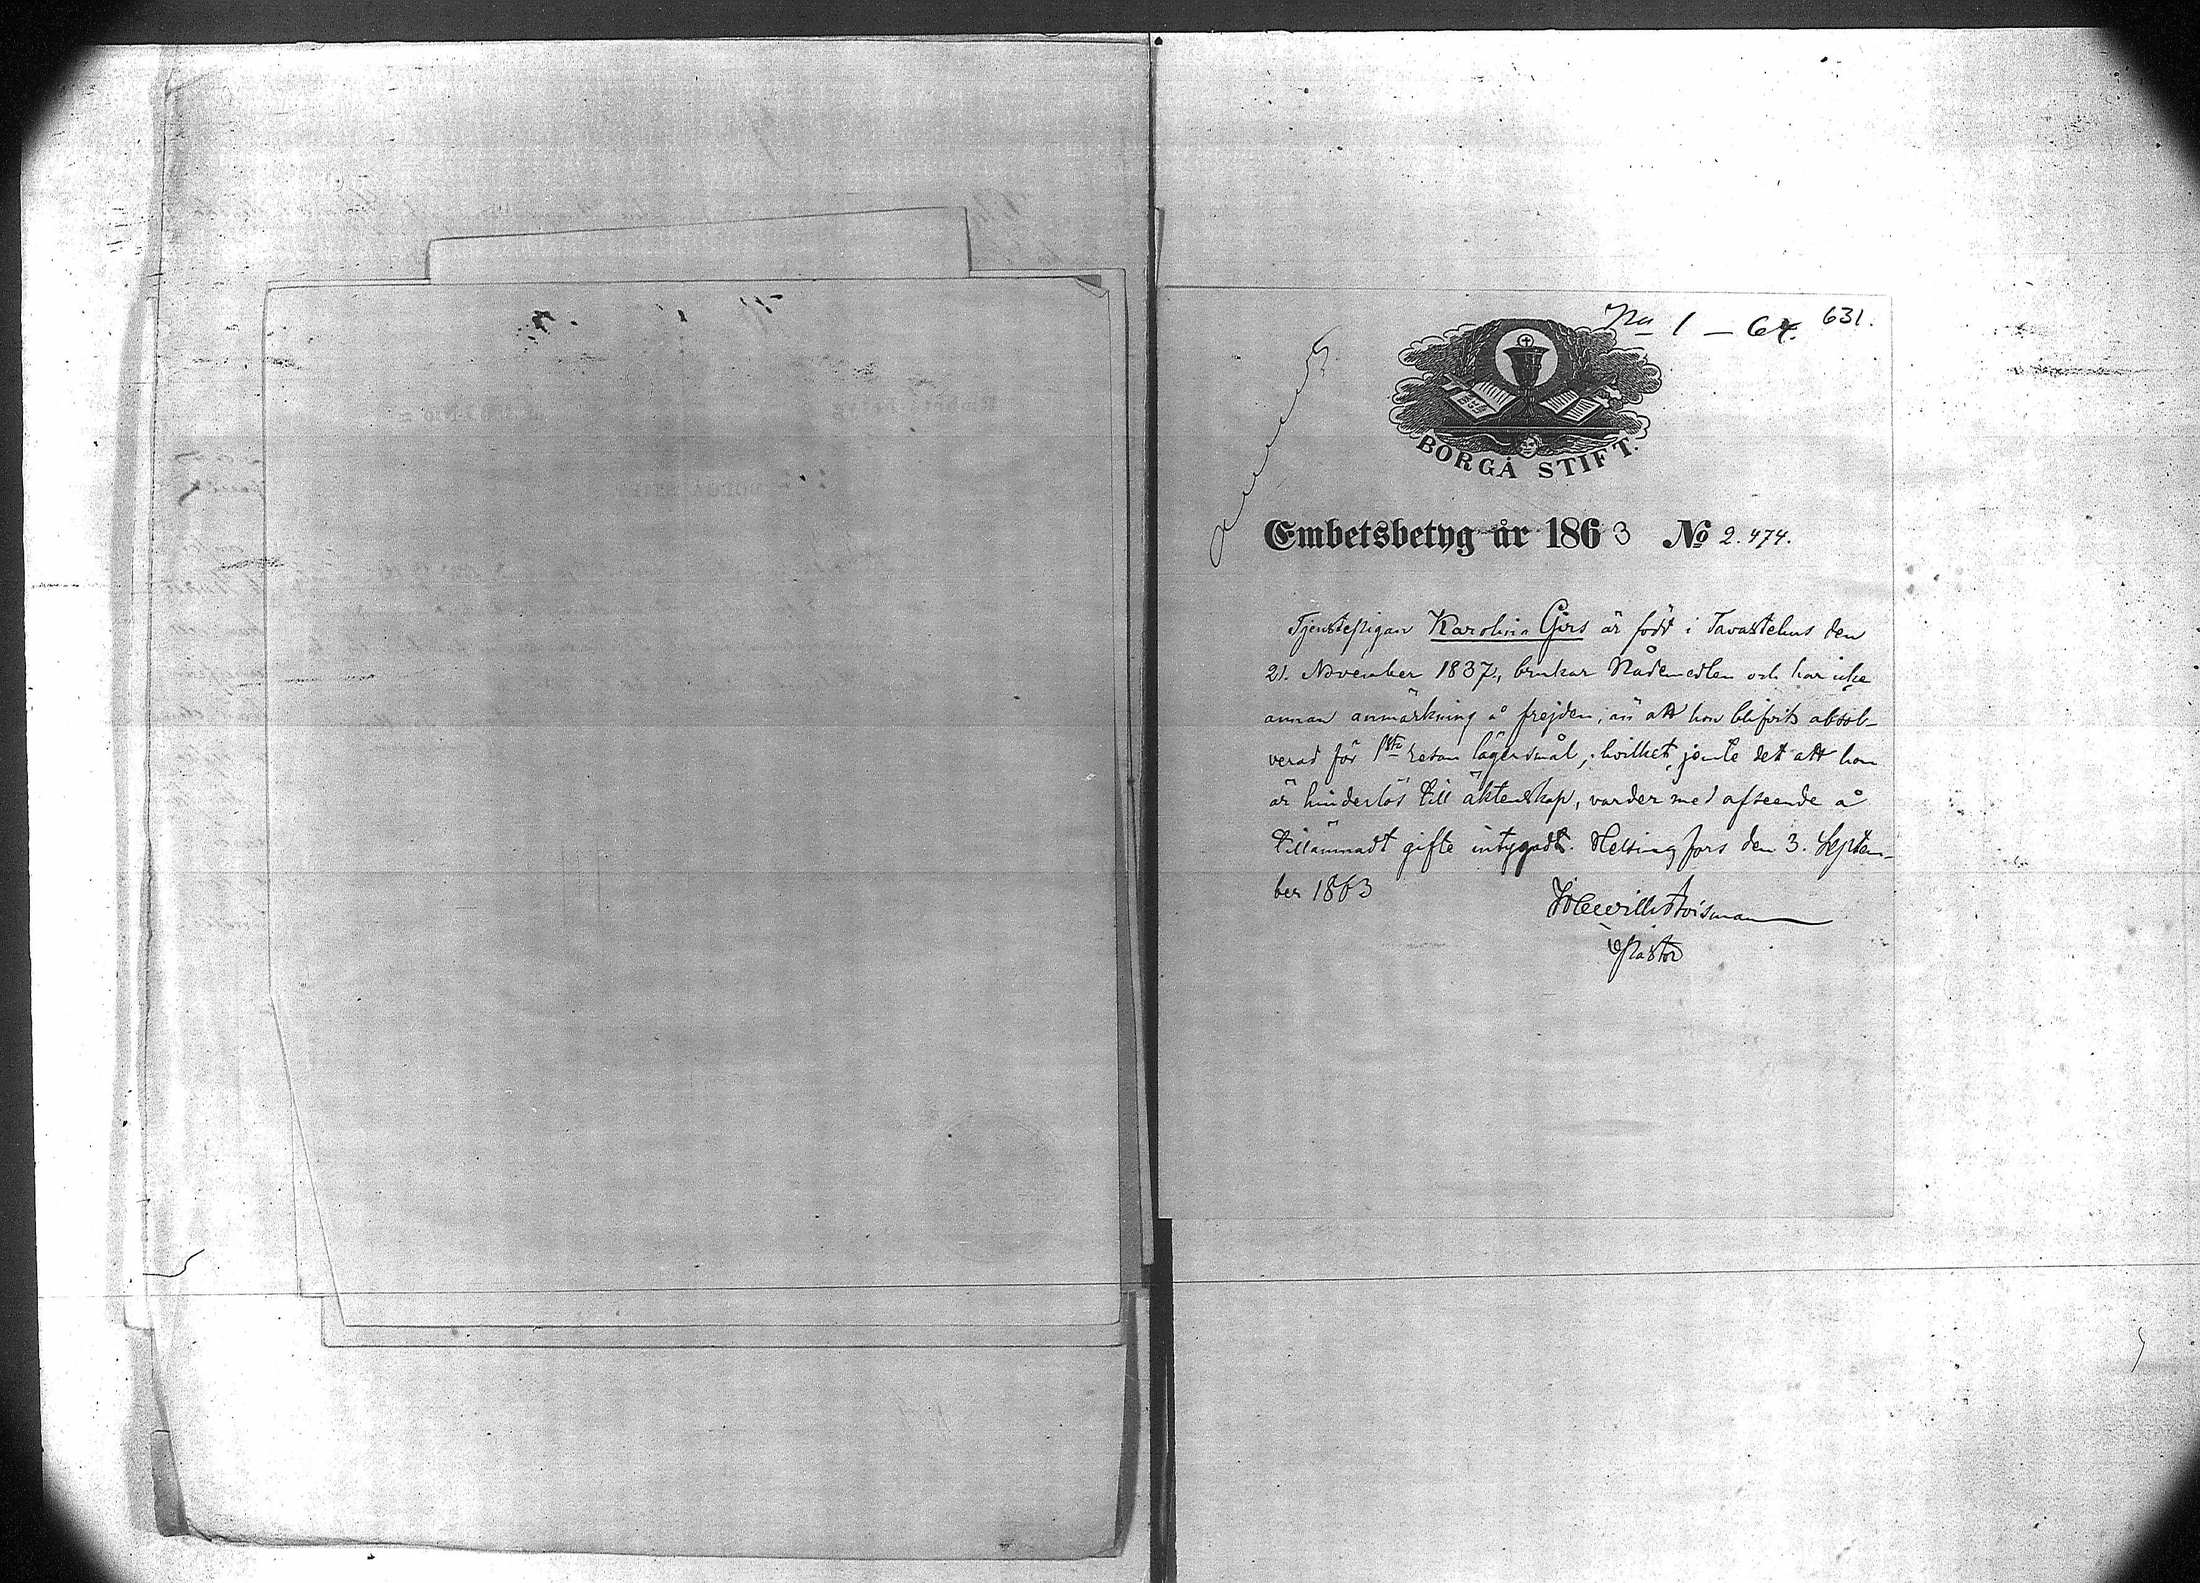 No 1 – 64. 631.
BORGÅ STIFT.
Embetsbetyg år 1863 No 2.474.
Tjenstepigan Karolina Girs är född i Tavastehus den
21. November 1837, brukar Nådemedlen och har icke
annan anmärkning å frejden, än att hon blifvit absol-
verad för 1sta resan lägersmål, hvilket, jemte det att hon
är hinderlös till äktenskap, varder med afseende å
tillämnadt gifte intygadt. Helsingfors den 3. Septem-
ber 1863
Pastor